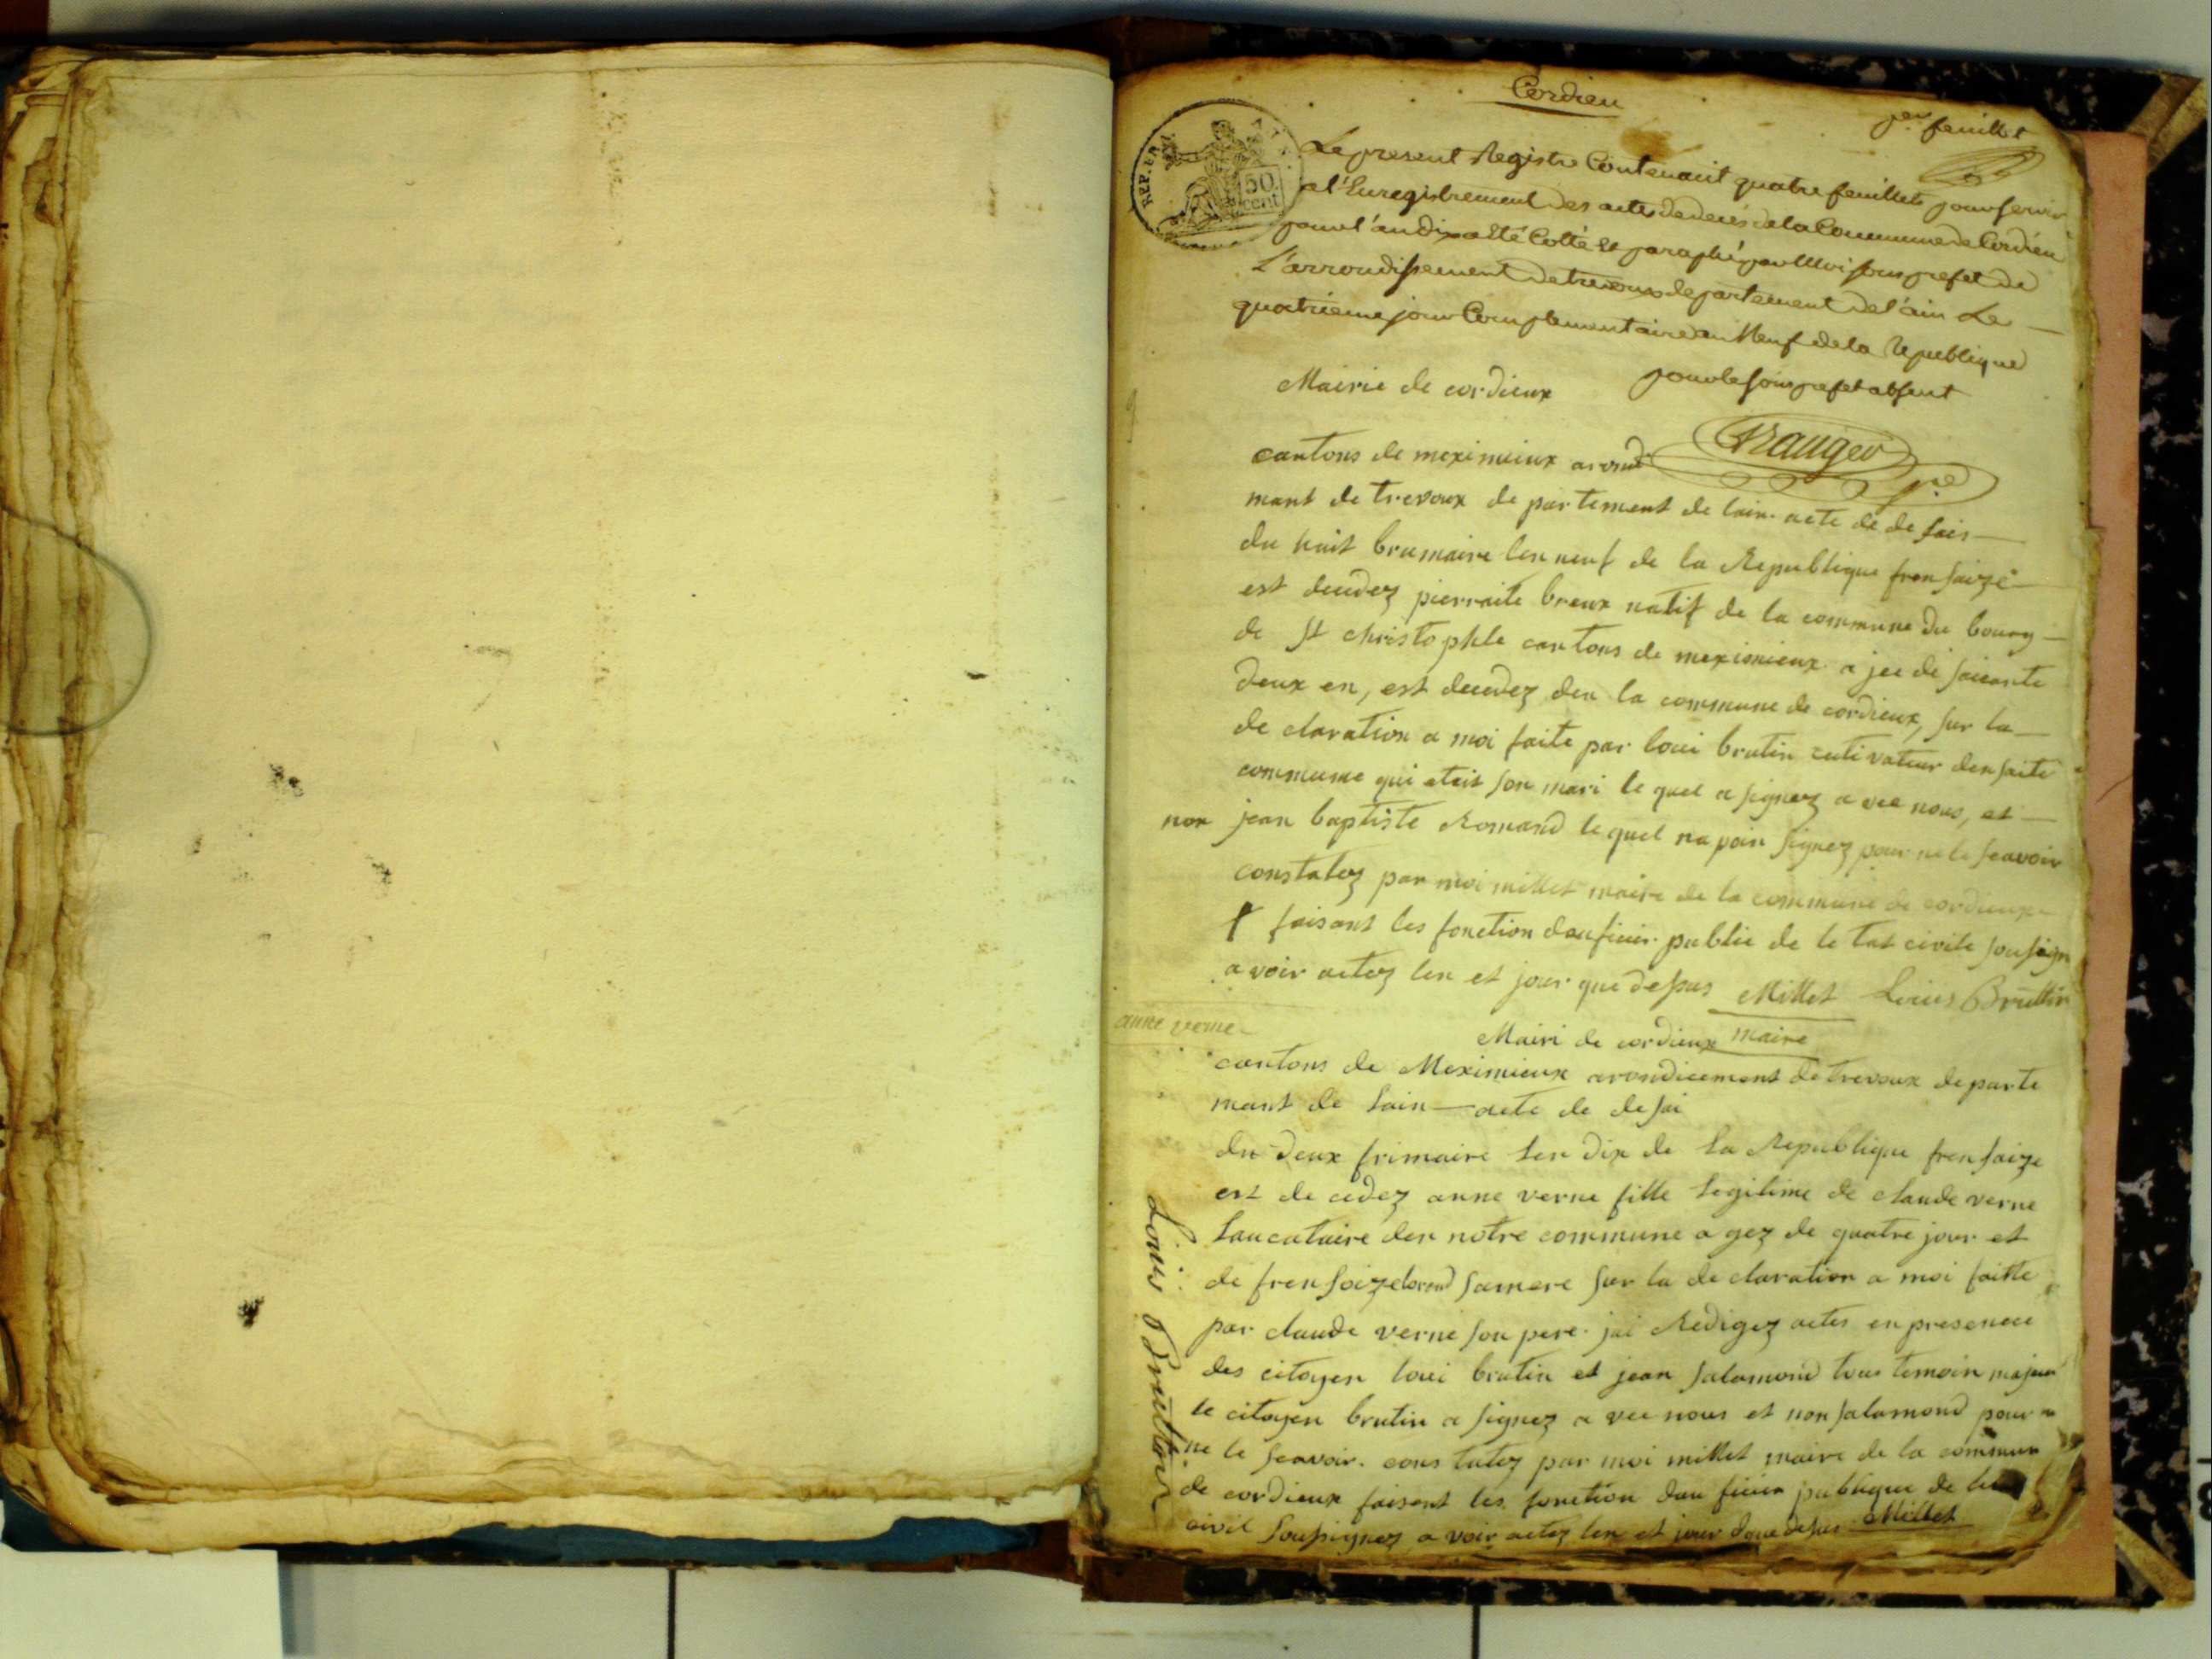 Cordieu
1er feuillet
REP. FRA.
50
cent
Le present Registre Contenant quatre feuillets pour servir
a l'Enregistrement des actes de decès de la Commune de Cordieu
pour l'an Dix a été Cotté et paraphé par Moi sous prefet de
L'arrondissement de trevoux departement de l'ain Le
quatrieme jour Complementaire an Neuf de la Republique
pour le sous prefet absent
Mairie de cordieux
cantons de meximieux arondi
mant de trevoux de partement de lain acte de de sais
du huit brumaire len neuf de la Republique fransaize
est decedez pierraite breux natif de la commune du bourg
de St christophle cantons de meximieux a jee de soicante
deux en, est decedez den la commune de cordieux, sur la
de claration a moi faite par loui brutin cutivateur den saite
commune qui etait son mari le quel a signez a vec nous, et
non jean baptiste Romand le quel na poin signez pour ne le scavoir
constatez par moi millet maire de la commune de cordieux
faisant les fonction dauficier public de le tat civile sousign
a voir actez len et jour que dessus Millet Louis Bruttin
maire
anne verne
Mairi de cordieux
cantons de Meximieux arondicement de trevoux de parte
mant de lain — acte de de sai
du deux frimaire len dix de la Republique fransaize
est de cedez anne verne fille legitime de claude verne
laucataire den notre commune a gez de quatre jour et
de fransoize sa mere sur la de claration a moi faitte
par claude verne son pere jai Redigez actes en presence
des citoyen loui brutin et jean salamond tous temoin majeur
le citoyen brutin a signez a vec nous et non salamond pour
ne le scavoir. cons tatez par moi millet maire de la commun
de cordieux faisant les fonction dau ficier publique de
civil soussignez a voir actez len et jour que desus Millet
Louis Bruttin